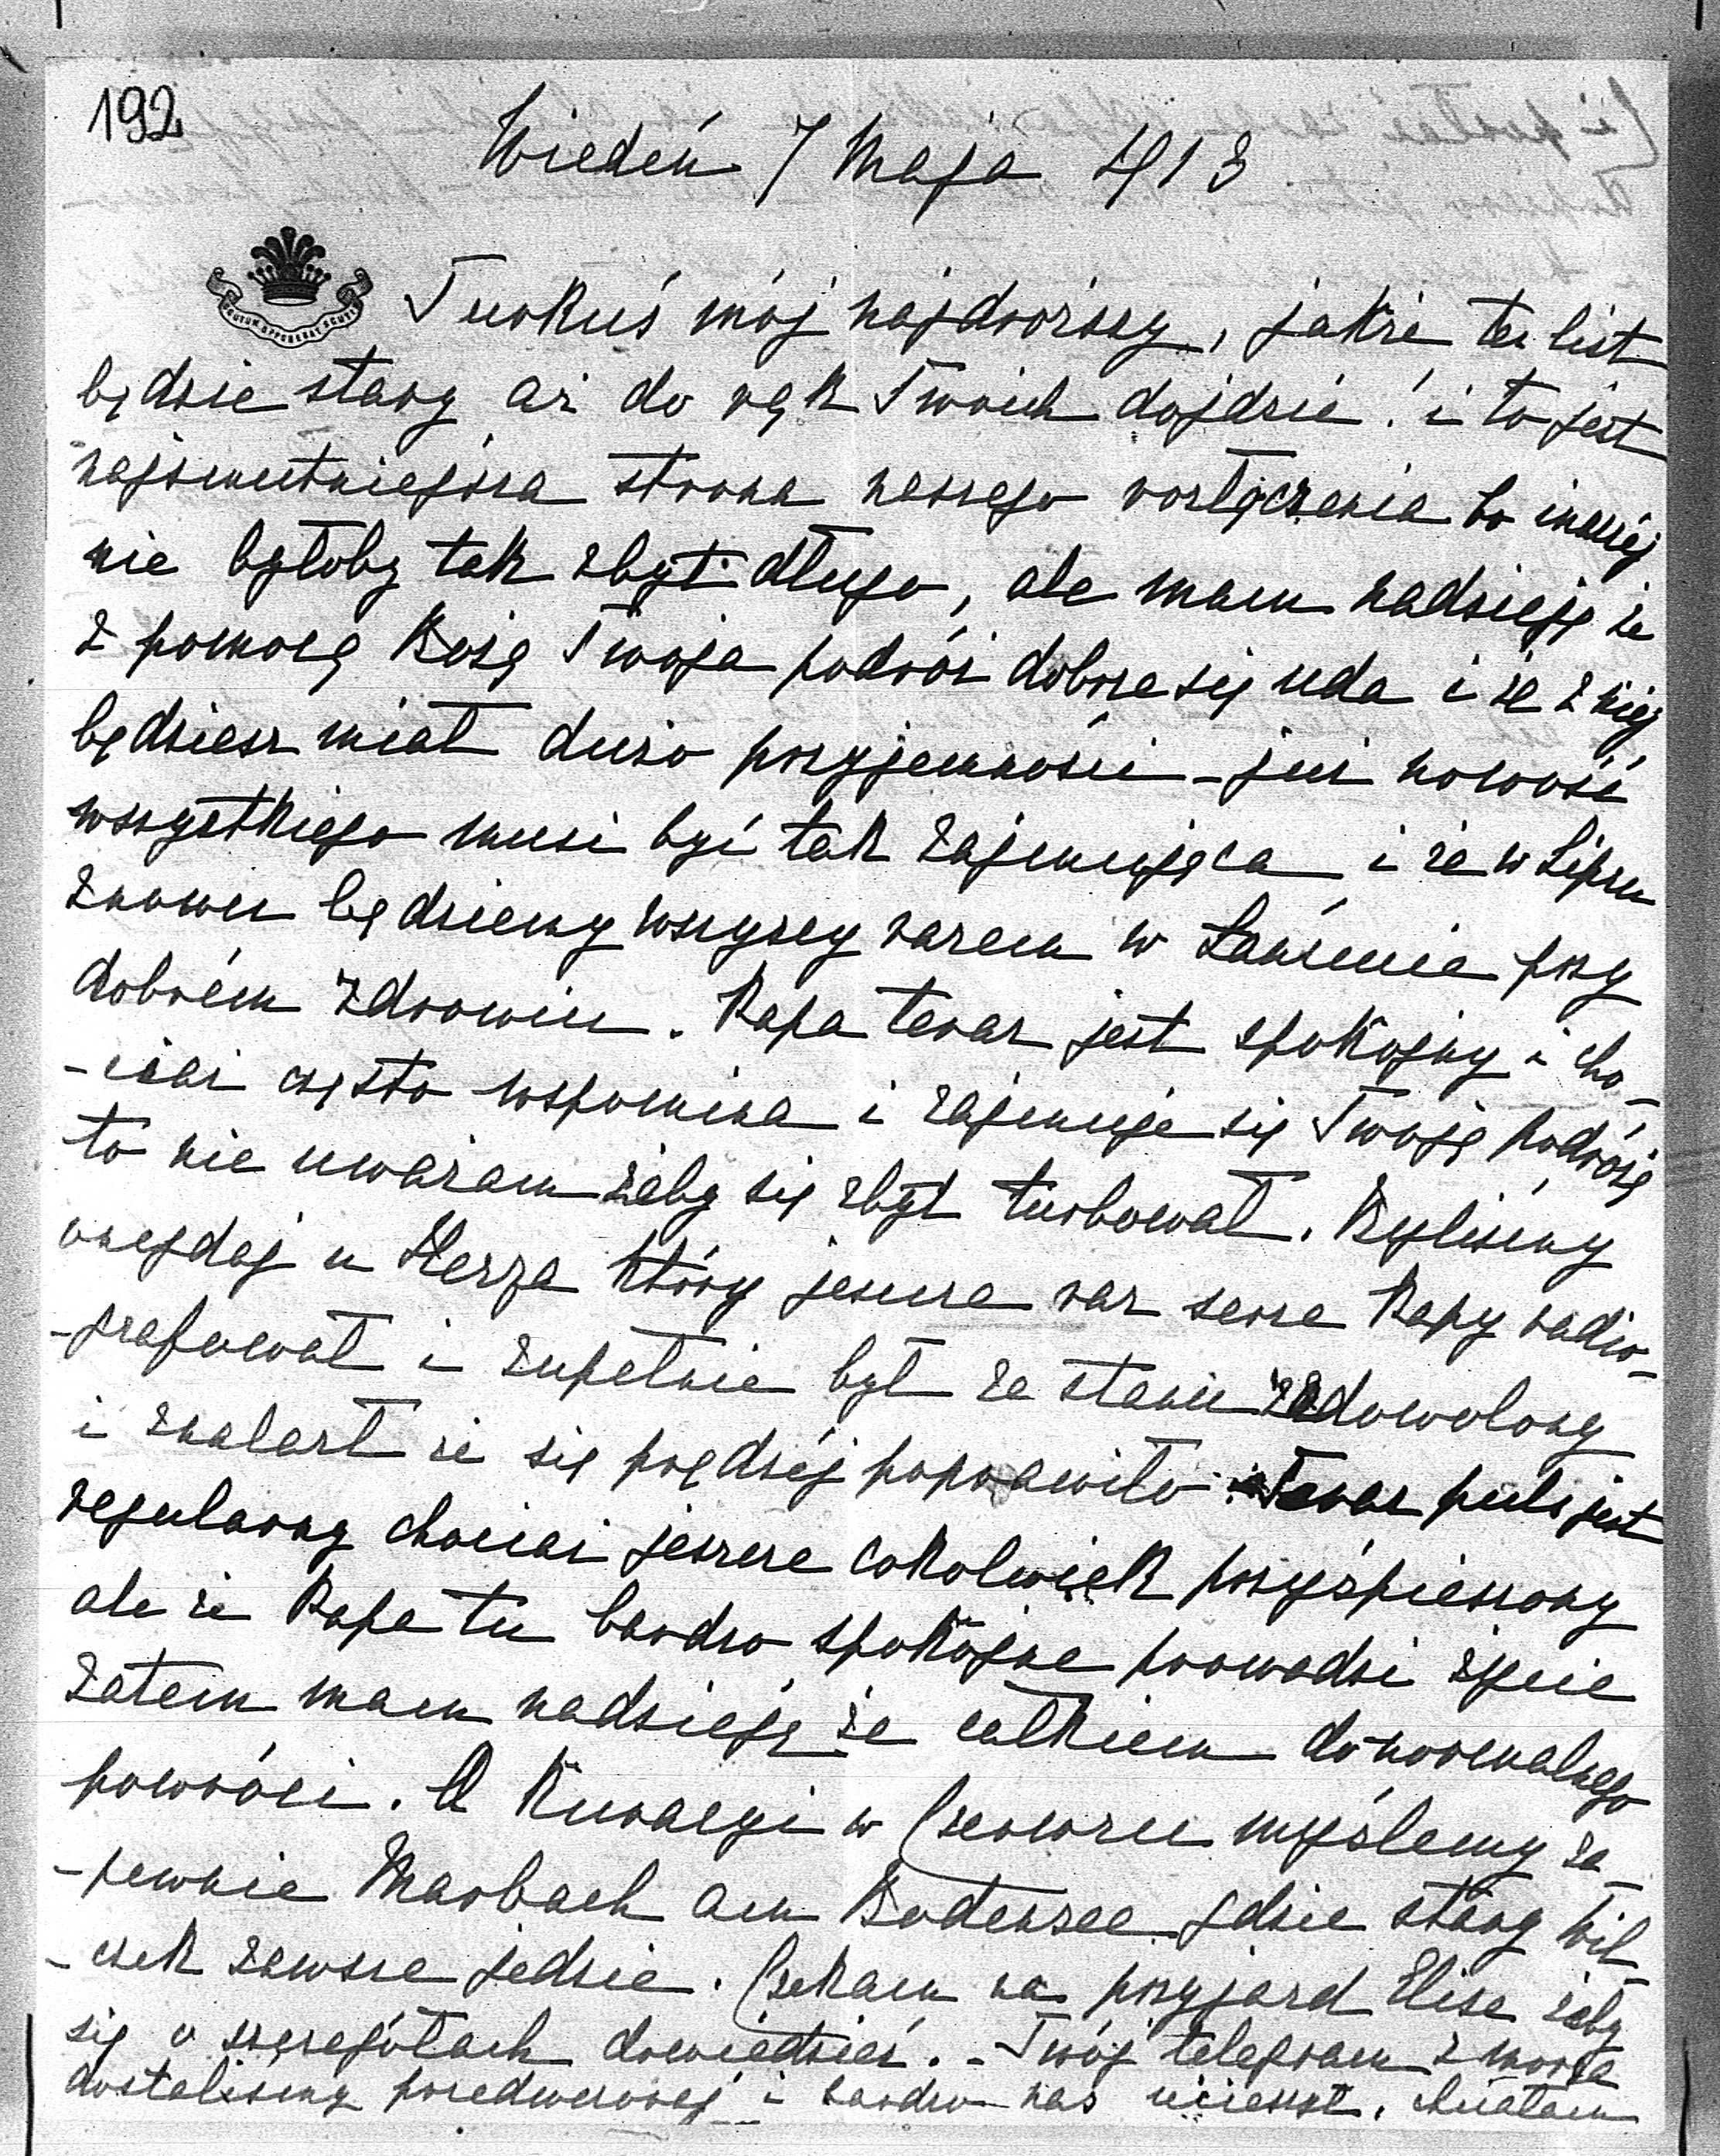 192
Wiedeń 7 Maja 1913
Turkuś mój najdroższy, jakże ten list
będzie stary aż do rąk Twoich dojdzie! i to jest
najsmutniejsza strona naszego rozłączenia bo inaczéj
nie byłoby tak zbyt długo, ale mam nadzieję że
z pomocą Bożą Twoja podróż dobrze się uda i że z niéj
będziesz miał dużo przyjemności - już nowość
wszystkiego musi być tak zajmująca i że w Lipcu
znowu będziemy wszyscy razem w Łańcucie przy
dobrém zdrowiu. Papa teraz jest spokojny i cho-
-ciaż często wspomina i zajmuje się Twoją podróżą
to nie uważam żeby się zbyt turbował. Byliśmy
onegdaj u Herza który jeszcze raz serce Papy radio-
-grafował i zupełnie był ze stanu zadowolony
i znalazł że się prędzéj poprawiło. Teraz puls jest
regularny chociaż jeszcze cokolwiek przyśpieszony
ale że Papa tu bardzo spokojne prowadzi życie
zatem mam nadzieję że całkiem do normalnego
powróci. O Kuracyi w Czerwcu myślemy za-
-pewnie Marbach am Bodensee gdzie stary Wil-
-czek zawsze jedzie. Czekam na przyjazd Elise żeby
się o szczegółach dowiedzieć. - Twój telegram z morza
dostaliśmy przedwczoraj i bardzo nas ucieszył. Chciałam